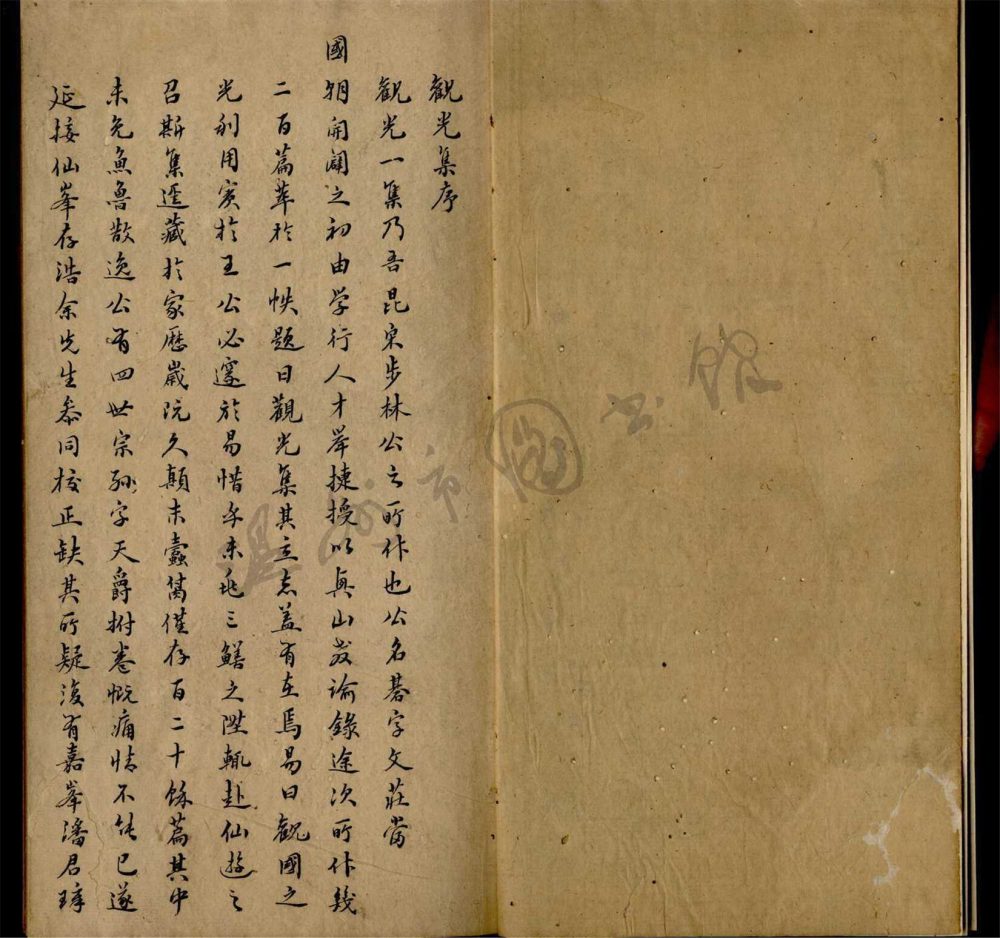 觀光集序
觀光一集乃吾昆宗步林公之所作也公名碁字文莊當
國朝開闢之初由学行人才举捷授以真山教諭錄途次所作幾
二百篇萃於一帙題曰觀光集其立志盖有在焉易曰觀國之
光利用賓於王公必邃於易惜乎未兆三鱔之陞輒赴仙遊之
召斯集遥藏於家歷歲既久顛末蠹蝕僅存百二十餘篇其中
未免魚魯散逸公有四世宗孙字天爵拊卷慨痛情不能已遂
延接仙峯存浩余先生叅同校正缺其所疑復有嘉峯潘君璋
温州市圖书館